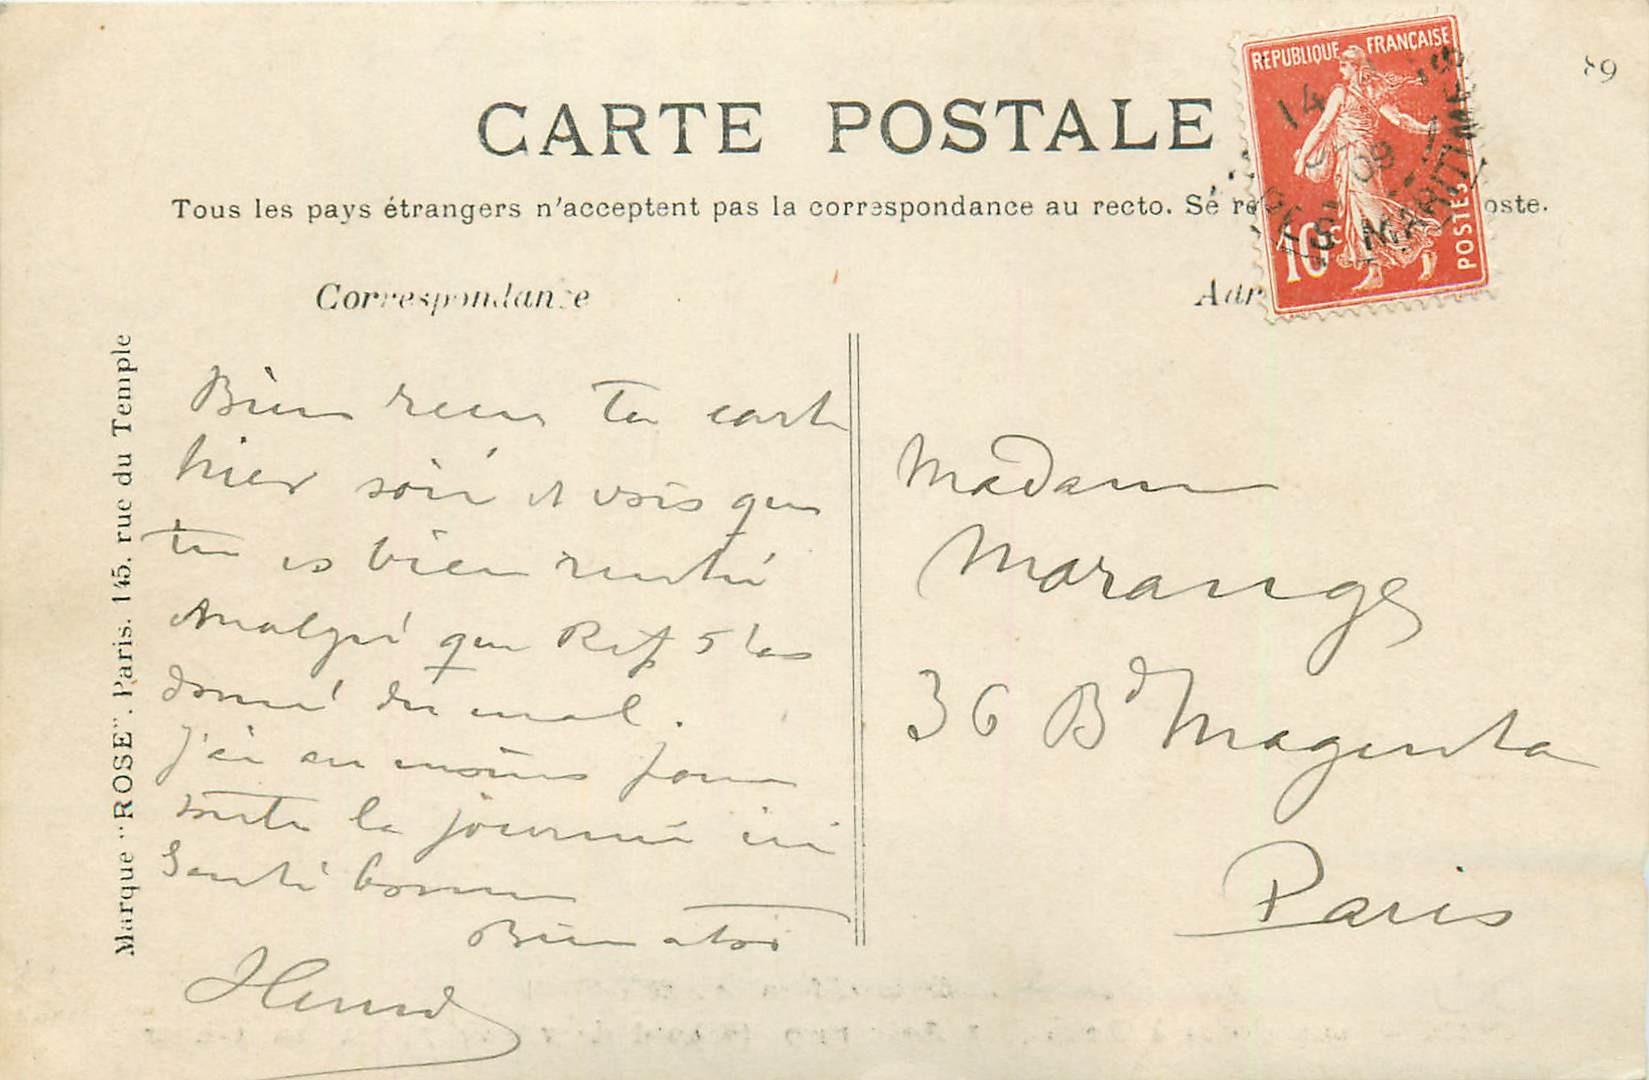 CARTE POSTALE
Tous les pays étrangers n'acceptent pas la correspondance au recto. Se re oste.
REPUBLIQUE FRANÇAISE
10 c
POSTES
14
09
MARITIME
Correspondance
Adr
Marque "ROSE". Paris. 145, rue du Temple
Bien reçu ta carte
hier soir et vois que
tu es bien rentré
malgré que Ref t'as
donné du mal.
J'ai au moins pour
toute la journée ici
Santé bonne
Bien à toi
Madame
Morange
36 Bd Magenta
Paris